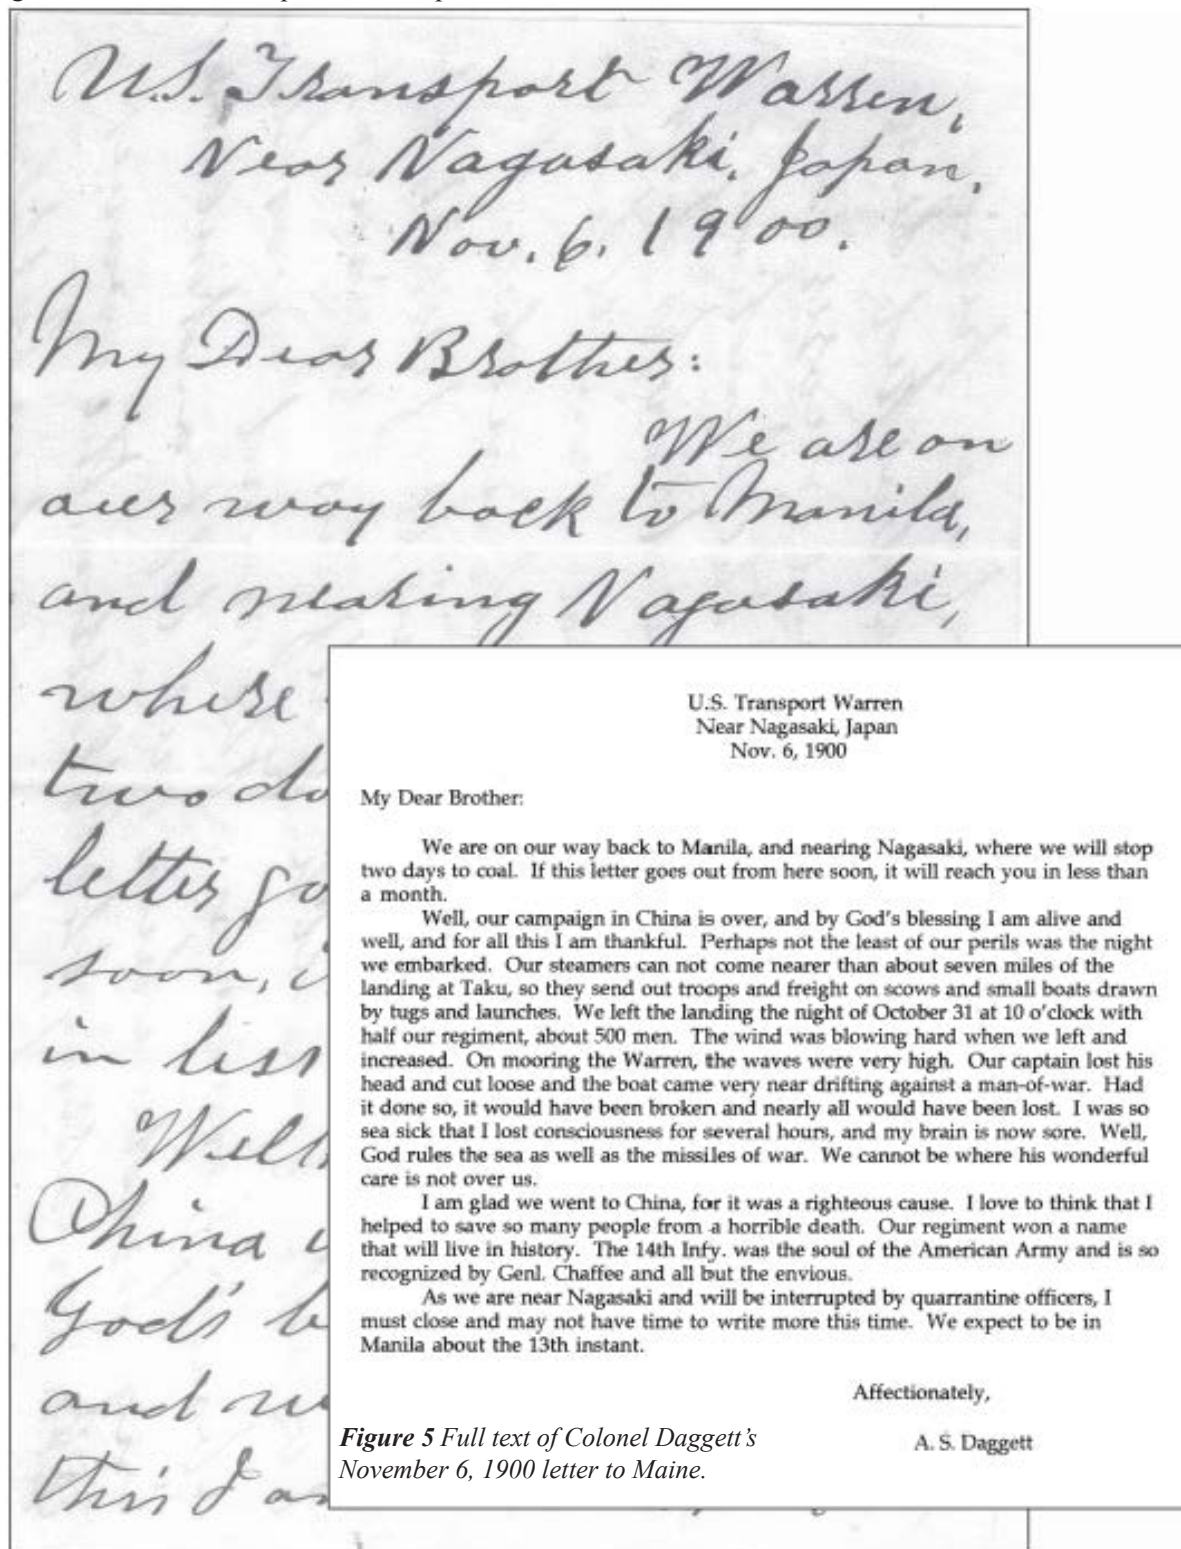 U.S. Transport Warren,
Near Nagasaki, Japan,
Nov. 6, 1900.
My Dear Brother:
We are on
our way back to Manila,
and nearing Nagasaki,
where
two
letter
soon,
in less
Well
China
God's
and
this I
U.S. Transport Warren
Near Nagasaki, Japan
Nov. 6, 1900
My Dear Brother:
We are on our way back to Manila, and nearing Nagasaki, where we will stop
two days to coal. If this letter goes out from here soon, it will reach you in less than
a month.
Well, our campaign in China is over, and by God's blessing I am alive and
well, and for all this I am thankful. Perhaps not the least of our perils was the night
we embarked. Our steamers can not come nearer than about seven miles of the
landing at Taku, so they send out troops and freight on scows and small boats drawn
by tugs and launches. We left the landing the night of October 31 at 10 o'clock with
half our regiment, about 500 men. The wind was blowing hard when we left and
increased. On mooring the Warren, the waves were very high. Our captain lost his
head and cut loose and the boat came very near drifting against a man-of-war. Had
it done so, it would have been broken and nearly all would have been lost. I was so
sea sick that I lost consciousness for several hours, and my brain is now sore. Well,
God rules the sea as well as the missiles of war. We cannot be where his wonderful
care is not over us.
I am glad we went to China, for it was a righteous cause. I love to think that I
helped to save so many people from a horrible death. Our regiment won a name
that will live in history. The 14th Infy. was the soul of the American Army and is so
recognized by Genl. Chaffee and all but the envious.
As we are near Nagasaki and will be interrupted by quarrantine officers, I
must close and may not have time to write more this time. We expect to be in
Manila about the 13th instant.
Affectionately,
A. S. Daggett
Figure 5 Full text of Colonel Daggett's
November 6, 1900 letter to Maine.